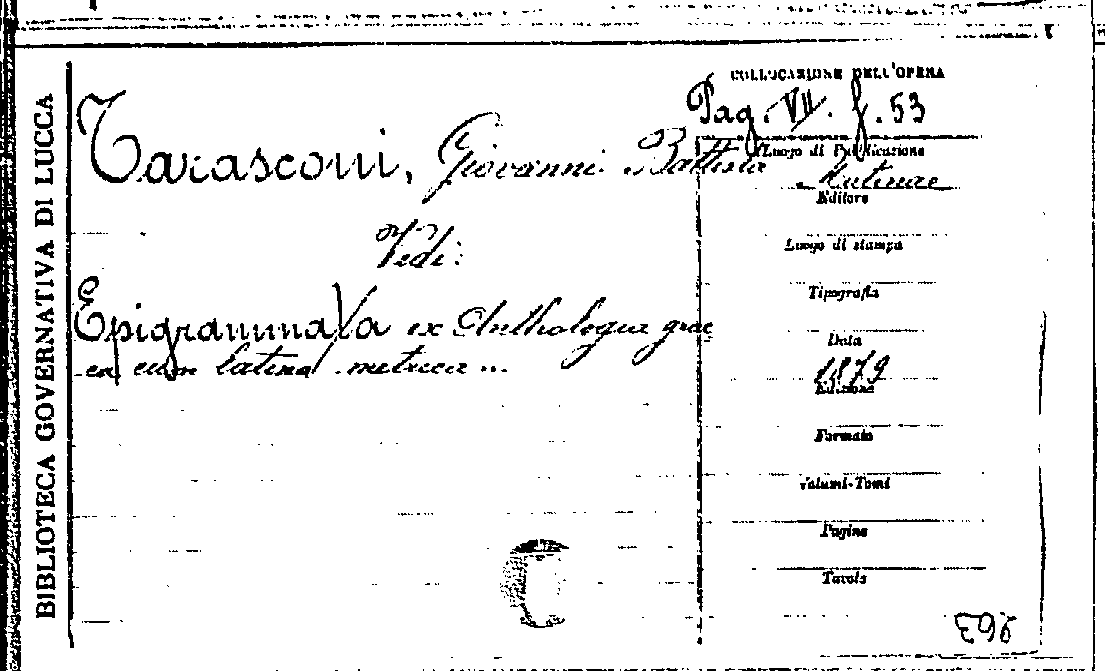 BIBLIOTECA GOVERNATIVA DI LUCCA
COLLOCAZIONE DELL'OPERA
Pag. VII. f. 53
Tarasconi, Giovanni Battista
Luogo di Pubblicazione
Mutinae
Editore
Vedi:
Luogo di stampa
Tipografia
Epigrammata ex Anthologia grae
ca cum latina metrica ...
Data
1879
Edizione
Formato
Volumi-Tomi
Pagine
Tavole
C